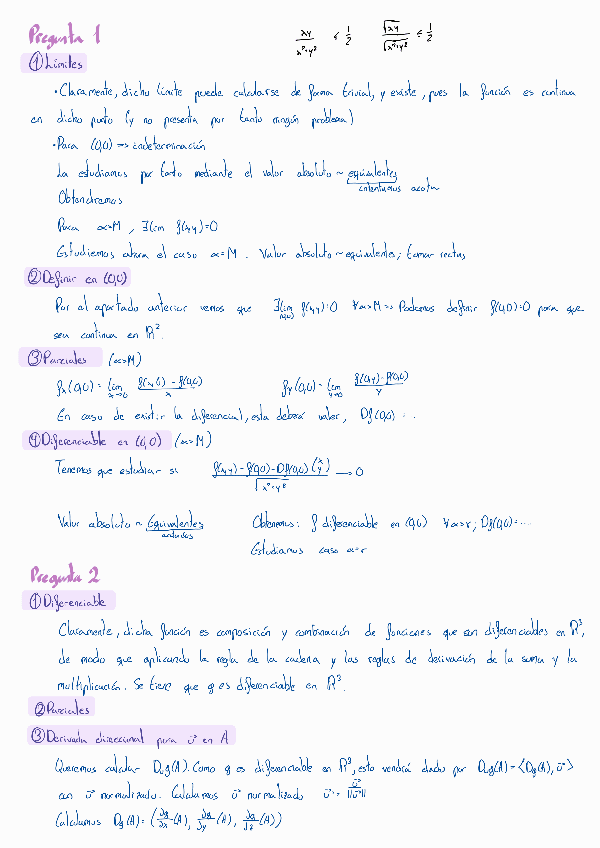 Pregunta 1
xy / x²+y² ≤ 1/2   √xy / √x²+y² ≤ 1/2
① Límites
• Claramente, dicho límite puede calcularse de forma trivial, y existe, pues la función es continua
en dicho punto (y no presenta por tanto ningún problema)
• Para (0,0) => indeterminación
La estudiamos por tanto mediante el valor absoluto ~ equivalentes
intentamos acotar
Obtendremos
Para α>M, ∃lim f(x,y)=0
Estudiemos ahora el caso α=M. Valor absoluto ~ equivalentes; tomar rectas
② Definir en (0,0)
Por el apartado anterior vemos que ∃lim f(x,y)=0 ∀α>M => Podemos definir f(0,0)=0 para que
(0,0)
sea continua en R².
③ Parciales (α>M)
fx(0,0) = lim x→0 f(x,0) - f(0,0) / x   fy(0,0) = lim y→0 f(0,y) - f(0,0) / y
En caso de existir la diferencial, esta deberá valer, Df(0,0) = ...
④ Diferenciable en (0,0) (α>M)
Tenemos que estudiar si f(x,y) - f(0,0) - Df(0,0)(x y) / √x²+y² → 0
Valor absoluto ~ Equivalentes   Obtenemos: f diferenciable en (0,0) ∀α>r; Df(0,0)=...
acotados
Estudiamos caso α=r
Pregunta 2
① Diferenciable
Claramente, dicha función es composición y combinación de funciones que son diferenciables en R³,
de modo que aplicando la regla de la cadena y las reglas de derivación de la suma y la
multiplicación. Se tiene que g es diferenciable en R³.
② Parciales
③ Derivada direccional para v⃗ en A
Queremos calcular Dvg(A). Como g es diferenciable en R³, esto vendrá dado por Dvg(A) = <Dg(A), v⃗>
con v⃗ normalizado. Calculamos v⃗ normalizado v⃗' = v⃗ / ||v⃗||
Calculamos Dg(A) = (∂g/∂x (A), ∂g/∂y (A), ∂g/∂z (A))